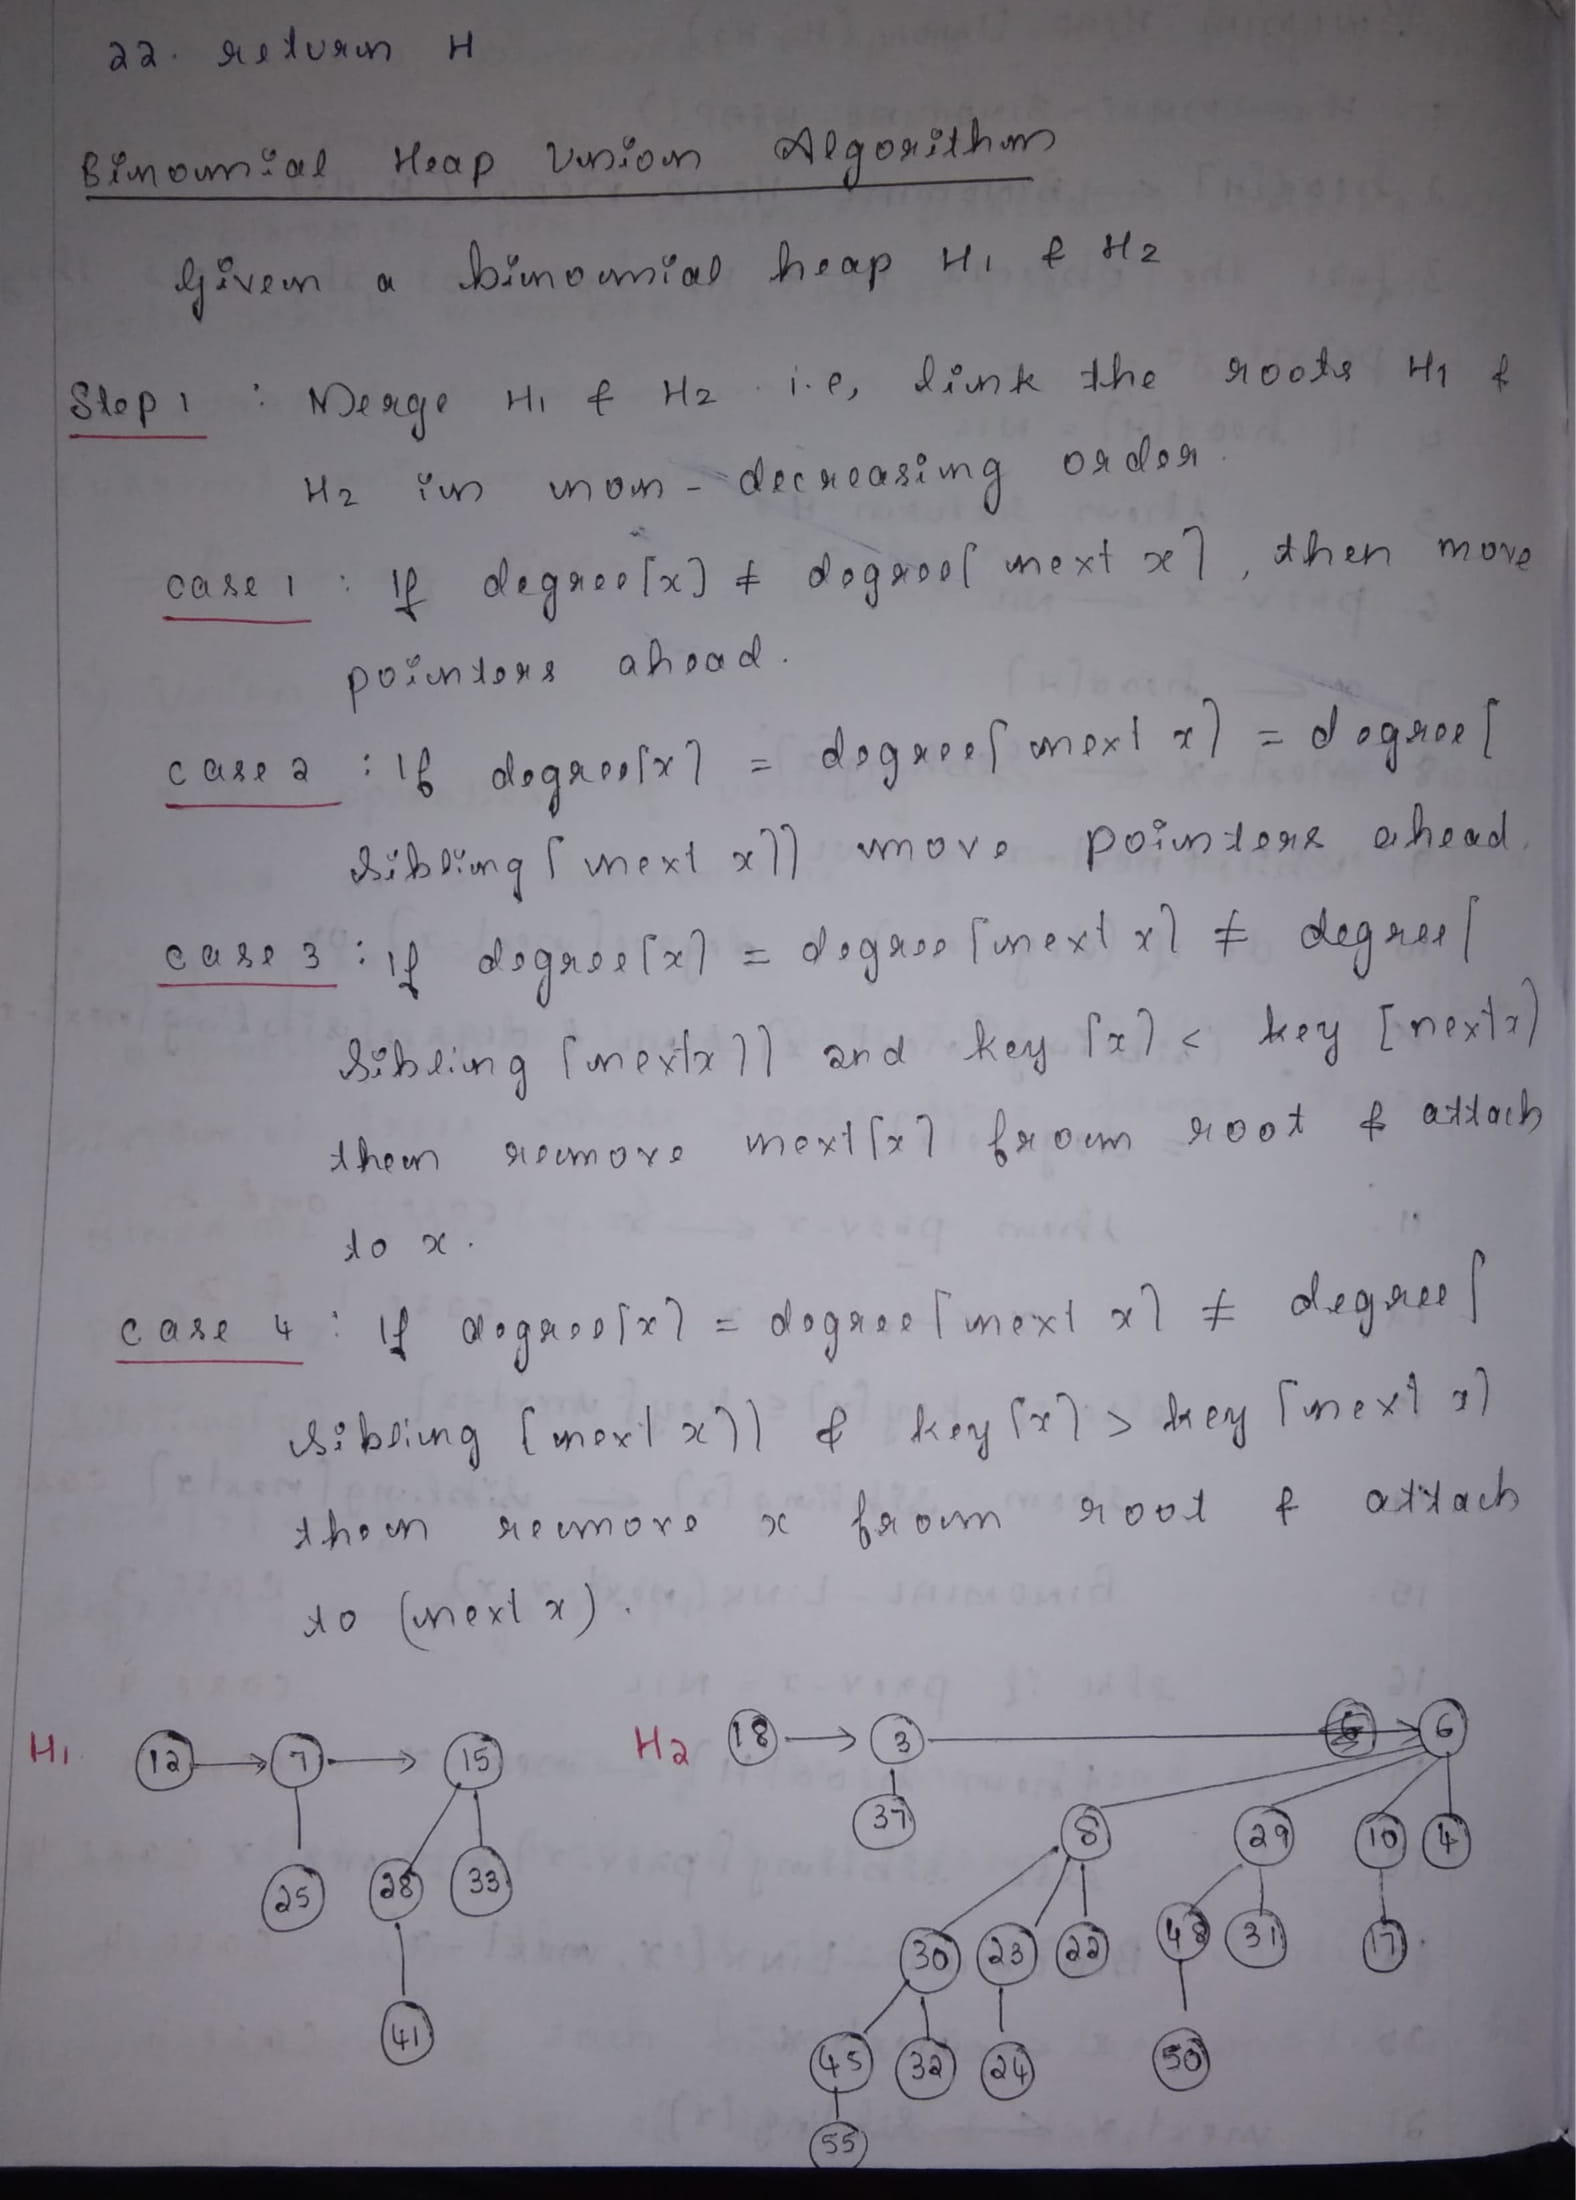 22. return H
Binomial Heap Union Algorithm
Given a binomial heap H1 & H2
Step 1 : Merge H1 & H2 i.e, link the roots H1 &
H2 in non-decreasing order.
case 1 : If degree[x] ≠ degree[next x], then move
pointers ahead.
case 2 : If degree[x] = degree[next x] = degree[
sibling[next x]] move pointers ahead.
case 3 : If degree[x] = degree[next x] ≠ degree[
sibling[next x]] and key[x] < key[next x)
then remove next[x] from root & attach
to x.
case 4 : If degree[x] = degree[next x] ≠ degree[
sibling [next x]] & key[x] > key[next x]
then remove x from root & attach
to (next x).
H1 12 7 15 H2 18 3 6
37
8 29 10 4
25 28 33
30 23 22 48 31 17
41
45 32 24 50
55